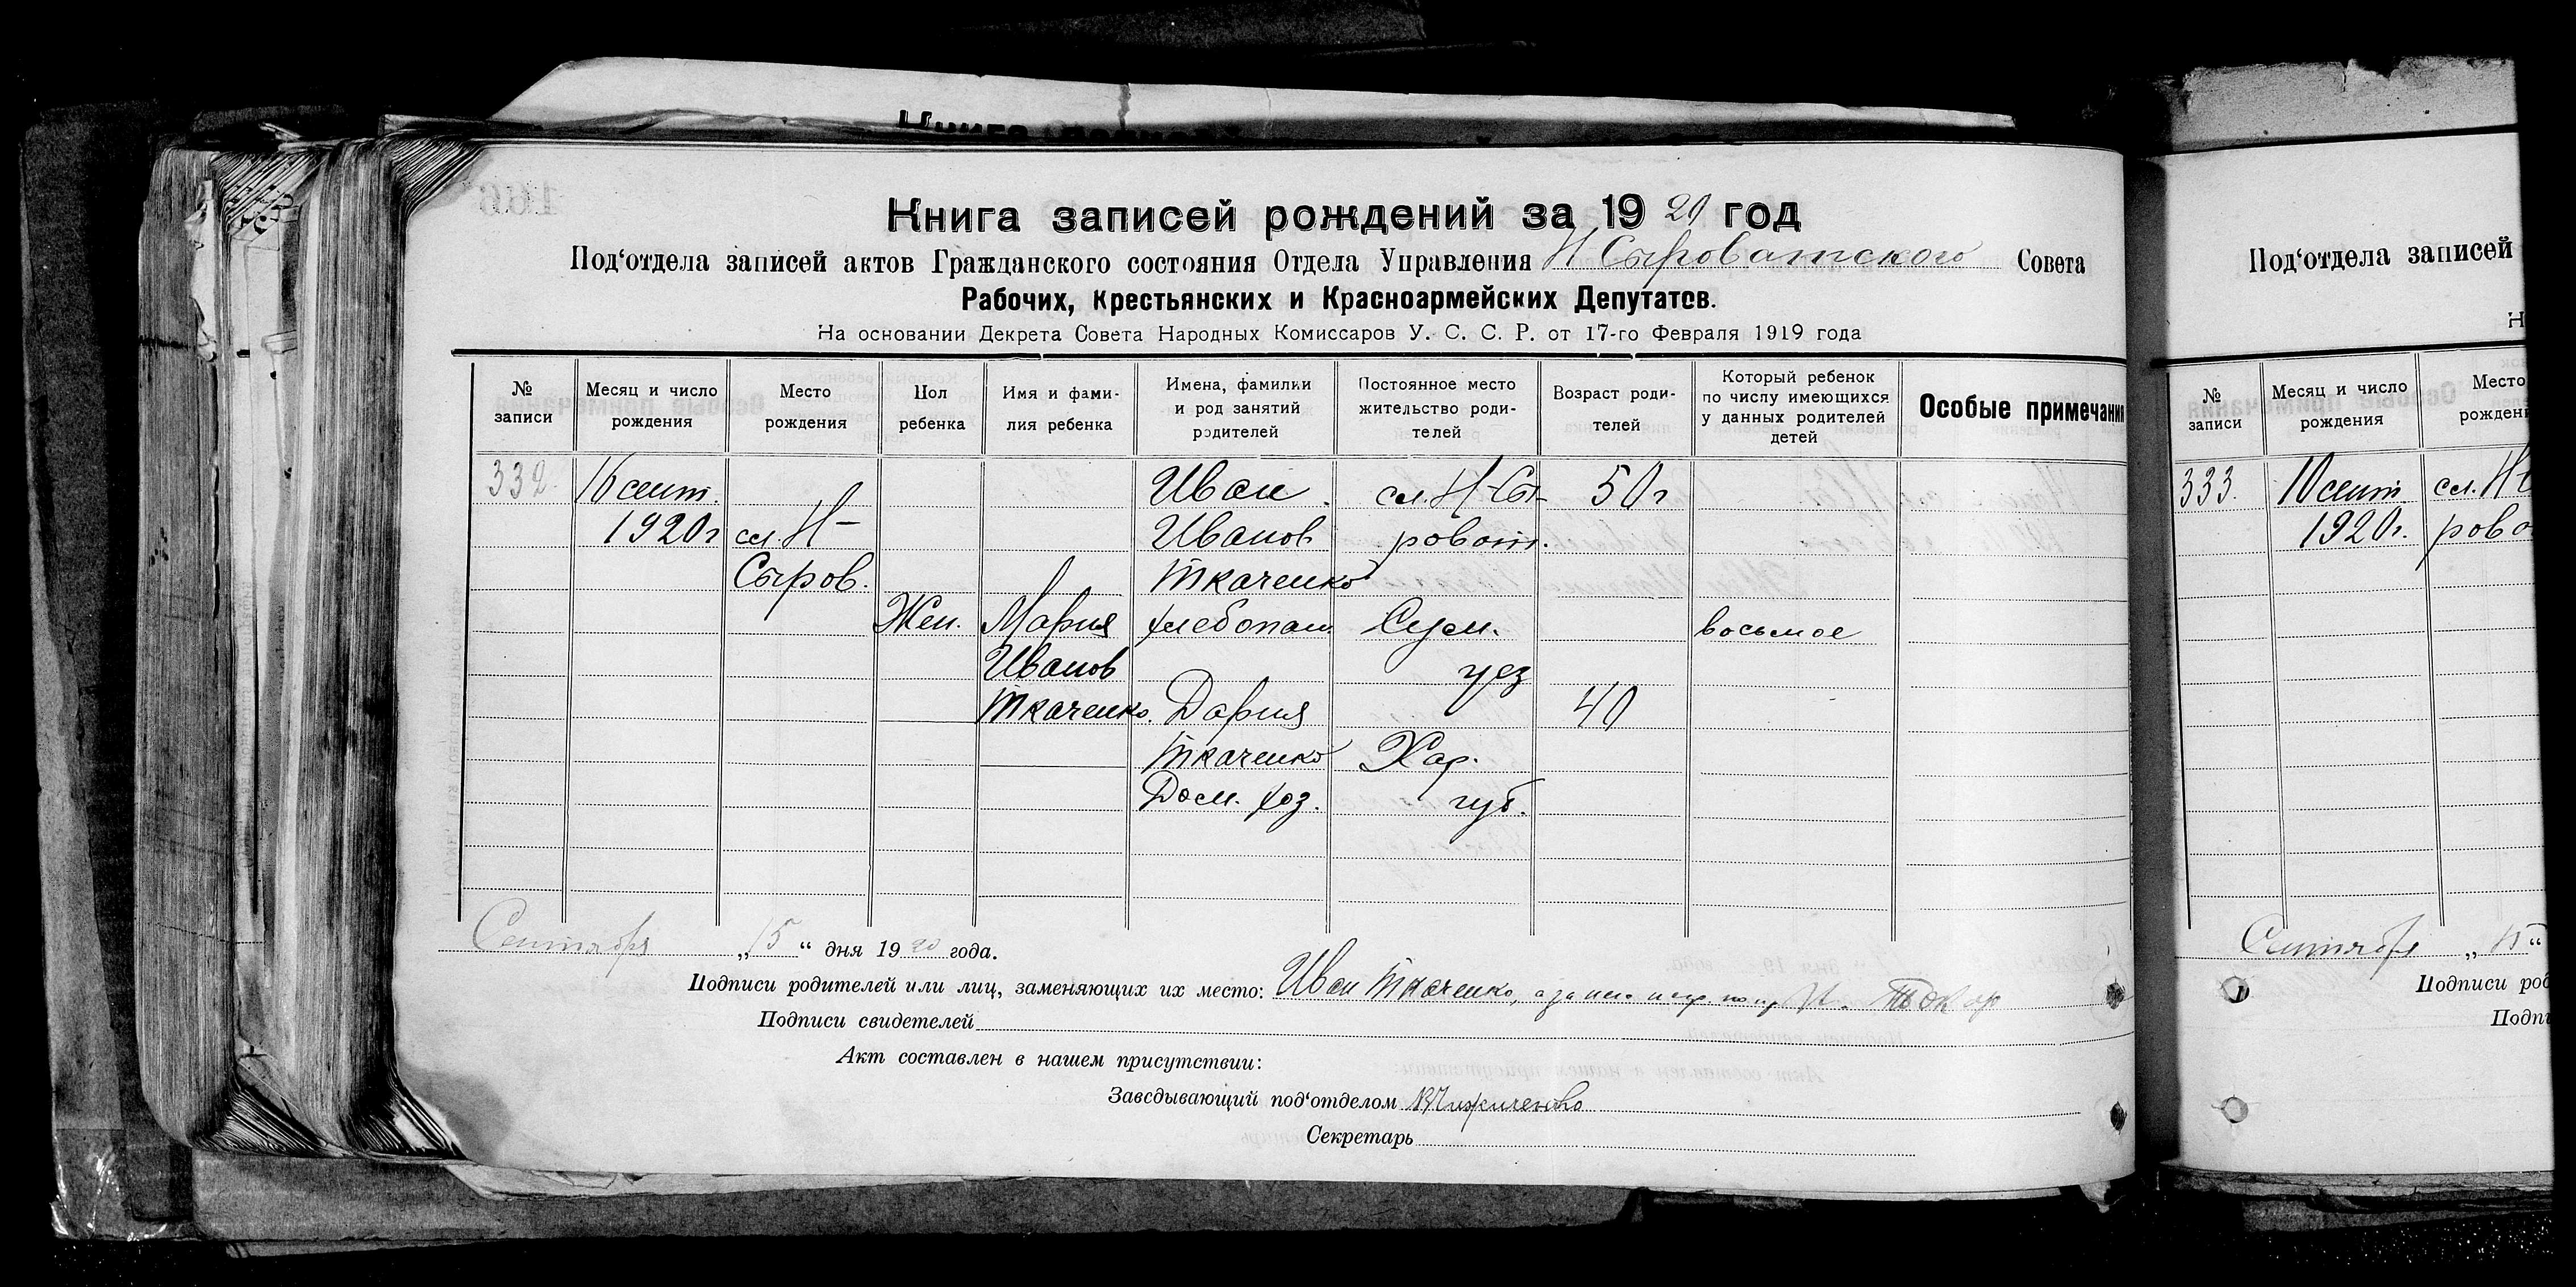 Книга записей рождений за 1920 год
Под‘отдела записей актов Гражданского состояния Отдела Управления Н Сыроватского Совета
Рабочих, Крестьянских и Красноармейских Депутатов.
На основании Декрета Совета Народных Комиссаров У. С. С. Р. от 17-го Февраля 1919 года
№ записи
Месяц и число рождения
Место рождения
Пол ребенка
Имя и фами-
лия ребенка
Имена, фамилии
и род занятий
родителей
Постоянное место
жительство роди-
телей
Возраст роди-
телей
Который ребенок
по числу имеющихся
у данных родителей
детей
Особые примечания
332.
сент.
1920г
сл. Н-
Сыров.
Жен.
Мария
Иванов
Ткаченко.
Иван
Иванов
Ткаченко
хлебопаш.
Дария
Ткаченко
Дом. хоз.
сл. Н-Сы-
роват.
Сум.
уез
Хар.
губ.
50г
40
восьмое
Сентября „15“ дня 1920 года.
Подписи родителей или лиц, заменяющих их место: Иван Ткаченко, а за него негр.
Подписи свидетелей
Акт составлен в нашем присутствии:
Заведывающий под‘отделом
Секретарь
Под‘отдела записей
№ записи
Месяц и число рождения
Место
рожден
333.
10 сент.
1920г.
сл. Н-
рово
Сентября
Подписи род
Подпи